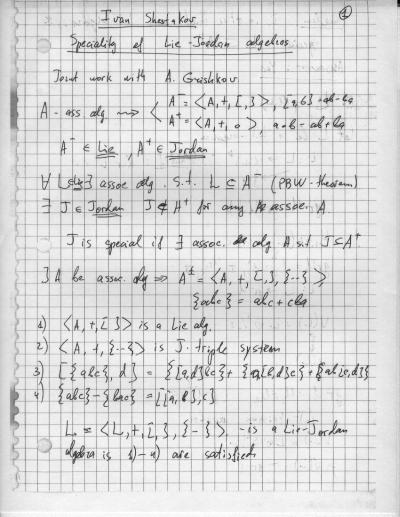 Ivan Shestakov.
Speciality of Lie-Jordan algebras.
Joint work with A. Grishkov.
A - ass alg ⟿ ⟨ A⁻ = ⟨A, +, [,]⟩, [a,b] = ab - ba
A⁺ = ⟨A, +, ∘⟩, a∘b = ab + ba
A⁻ ∈ Lie, A⁺ ∈ Jordan
∀ L ∃ assoc alg. s.t. L ⊆ A⁻ (PBW-theorem)
∃ J ∈ Jordan J ⊄ A⁺ for any assoc. A.
J is special if ∃ assoc. alg A s.t. J ⊆ A⁺
∃ A be assoc. alg ⇒ A^± = ⟨A, +, [,], {---}⟩,
{abc} = abc + cba
1) ⟨A, +, [,]⟩ is a Lie alg.
2) ⟨A, +, {---}⟩ is J. triple system
3) [{abc}, d] = {[a,d]bc} + {a[b,d]c} + {ab[c,d]}
4) {abc} - {bac} = [[a,b],c]
L = ⟨L, +, [,], {---}⟩ - is a Lie-Jordan
algebra is 1) - 4) are satisfied.